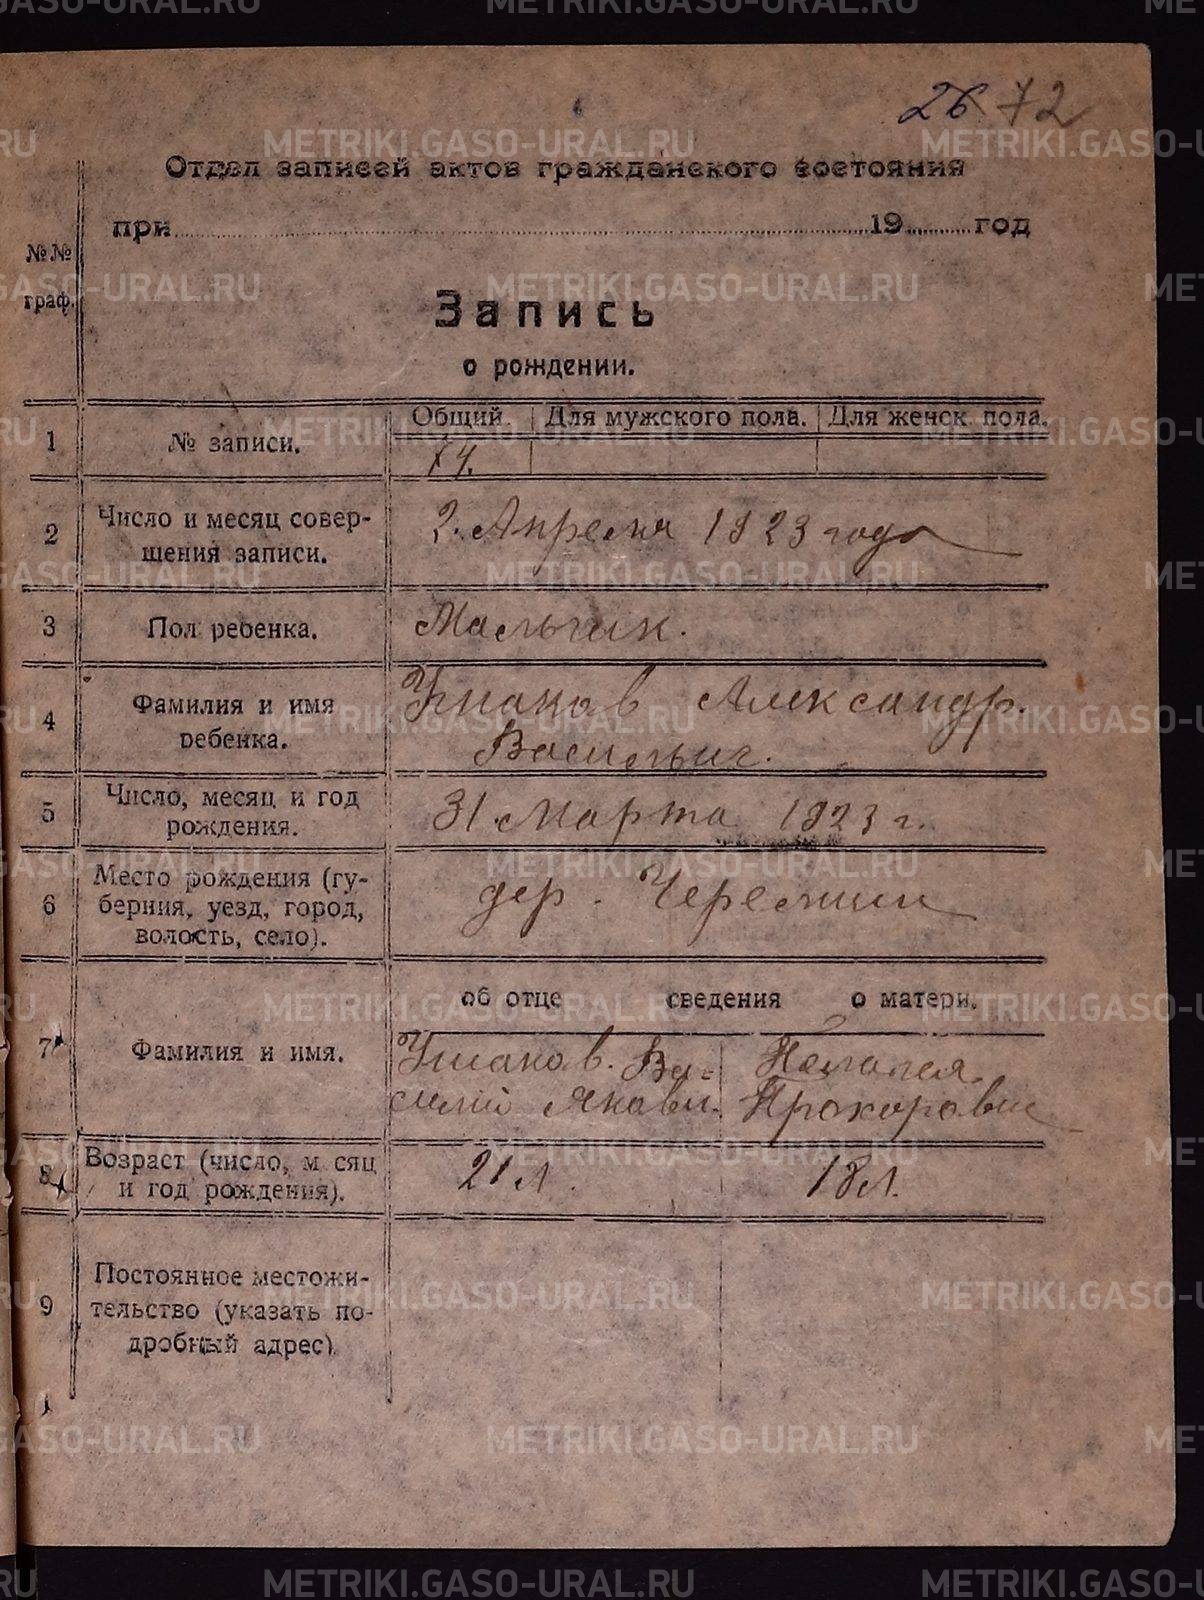 26 72
Отдел записей актов гражданского состояния
при 19 год
№№
граф.
Запись
о рождении.
Общий. Для мужского пола. Для женск. пола.
1 № записи. 74.
2 Число и месяц совер-
шения записи.
2. Апреля 1923 года
3 Пол ребенка. Мальчик.
4 Фамилия и имя
ребенка.
Ушаков Александр.
Васильич.
5 Число, месяц и год
рождения.
31 Марта 1923 г.
6 Место рождения (гу-
берния, уезд, город,
волость, село).
дер. Черемши
об отце сведения о матери.
7 Фамилия и имя.
Ушаков. Ва-
силий Якови.
Пелагея
Прохоровн
8 Возраст (число, м сяц
и год рождения).
21 л. 18 л.
9 Постоянное местожи-
тельство (указать по-
дробный адрес)
METRIKI.GASO-URAL.RU